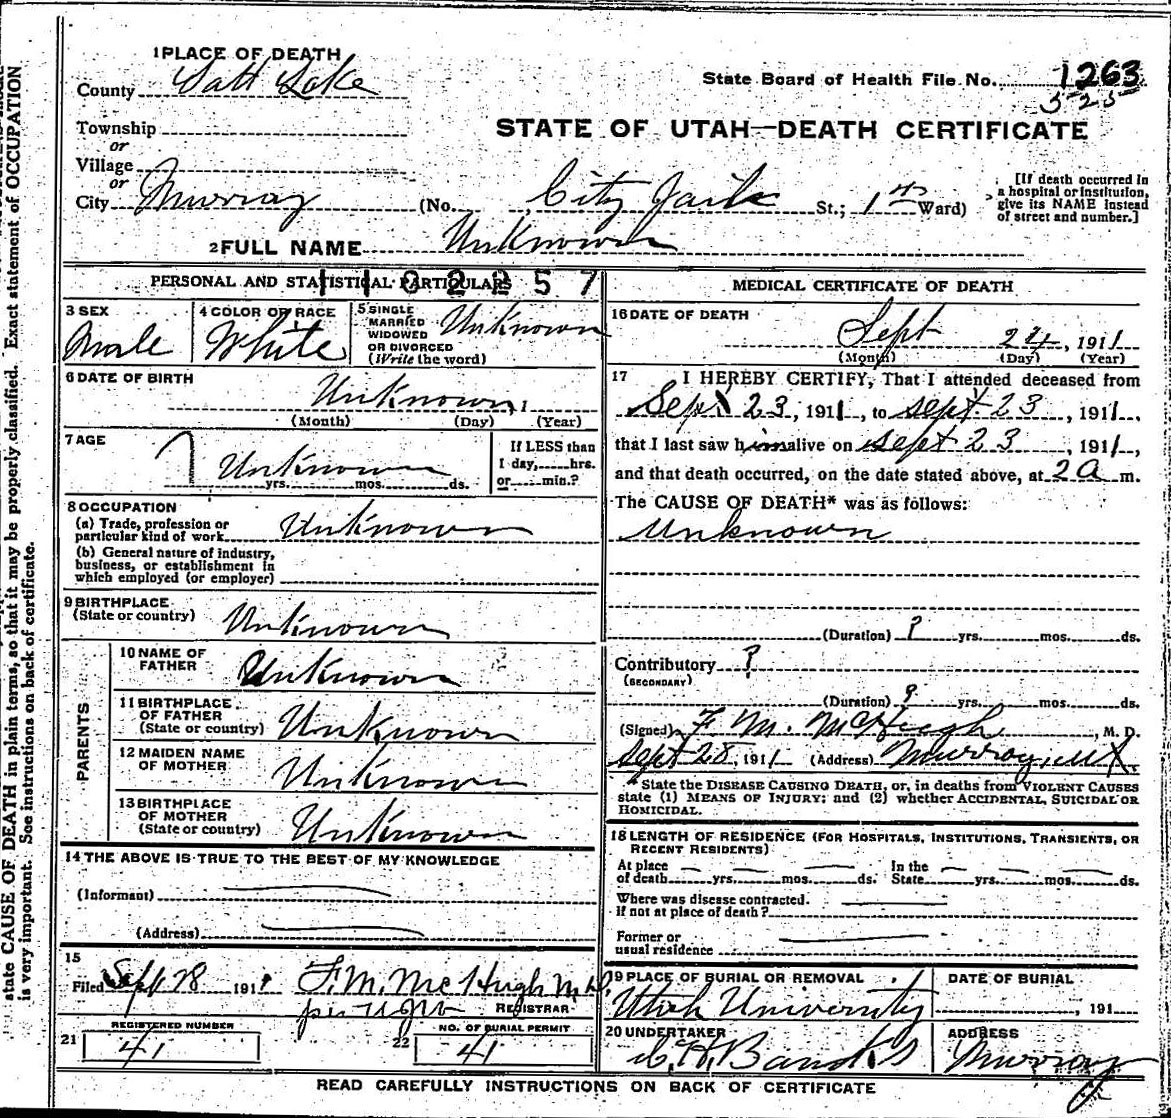 state CAUSE OF DEATH in plain terms, so that it may be properly classified. Exact statement of OCCUPATION
is very important. See instructions on back of certificate.
1 PLACE OF DEATH
County Salt Lake
State Board of Health File No. 1263
525
Township
or
STATE OF UTAH—DEATH CERTIFICATE
Village
or
City Murray (No. City Jail St.; 1st Ward)
[If death occurred in
a hospital or institution,
give its NAME instead
of street and number.]
2 FULL NAME Unknown
PERSONAL AND STATISTICAL PARTICULARS
1102257
3 SEX
Male
4 COLOR OR RACE
White
5 SINGLE
MARRIED
WIDOWED
OR DIVORCED
(Write the word)
Unknown
6 DATE OF BIRTH
Unknown, 1
(Month) (Day) (Year)
7 AGE
Unknown
yrs. mos. ds.
If LESS than
1 day, hrs.
or min.?
8 OCCUPATION
(a) Trade, profession or
particular kind of work Unknown
(b) General nature of industry,
business, or establishment in
which employed (or employer)
9 BIRTHPLACE
(State or country) Unknown
PARENTS
10 NAME OF
FATHER Unknown
11 BIRTHPLACE
OF FATHER
(State or country) Unknown
12 MAIDEN NAME
OF MOTHER Unknown
13 BIRTHPLACE
OF MOTHER
(State or country) Unknown
14 THE ABOVE IS TRUE TO THE BEST OF MY KNOWLEDGE
(Informant)
(Address)
15
Filed Sept 28 1911 F. M. McHugh M.D.
per
REGISTRAR
REGISTERED NUMBER
21 41
NO. OF BURIAL PERMIT
22 41
MEDICAL CERTIFICATE OF DEATH
16 DATE OF DEATH
Sept 24, 1911
(Month) (Day) (Year)
17 I HEREBY CERTIFY, That I attended deceased from
Sept 23, 1911, to Sept 23, 1911,
that I last saw him alive on Sept 23, 1911,
and that death occurred, on the date stated above, at 2 a m.
The CAUSE OF DEATH* was as follows:
Unknown
(Duration) ? yrs. mos. ds.
Contributory ?
(SECONDARY)
(Duration) ? yrs. mos. ds.
(Signed) F. M. McHugh, M. D.
Sept 28, 1911 (Address) Murray, Ut.
* State the DISEASE CAUSING DEATH, or, in deaths from VIOLENT CAUSES
state (1) MEANS OF INJURY; and (2) whether ACCIDENTAL, SUICIDAL OR
HOMICIDAL.
18 LENGTH OF RESIDENCE (FOR HOSPITALS, INSTITUTIONS, TRANSIENTS, OR
RECENT RESIDENTS)
At place
of death yrs. mos. ds.
In the
State yrs. mos. ds.
Where was disease contracted.
if not at place of death?
Former or
usual residence
19 PLACE OF BURIAL OR REMOVAL
Utah University
DATE OF BURIAL
, 191
20 UNDERTAKER
ADDRESS
Murray
READ CAREFULLY INSTRUCTIONS ON BACK OF CERTIFICATE